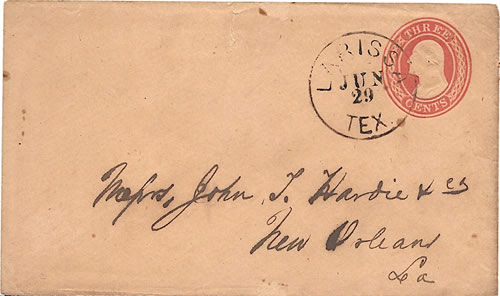 THREE
CENTS
LARISSA
JUN
29
TEX.
Messrs, John T. Hardie & Co
New Orleans
La